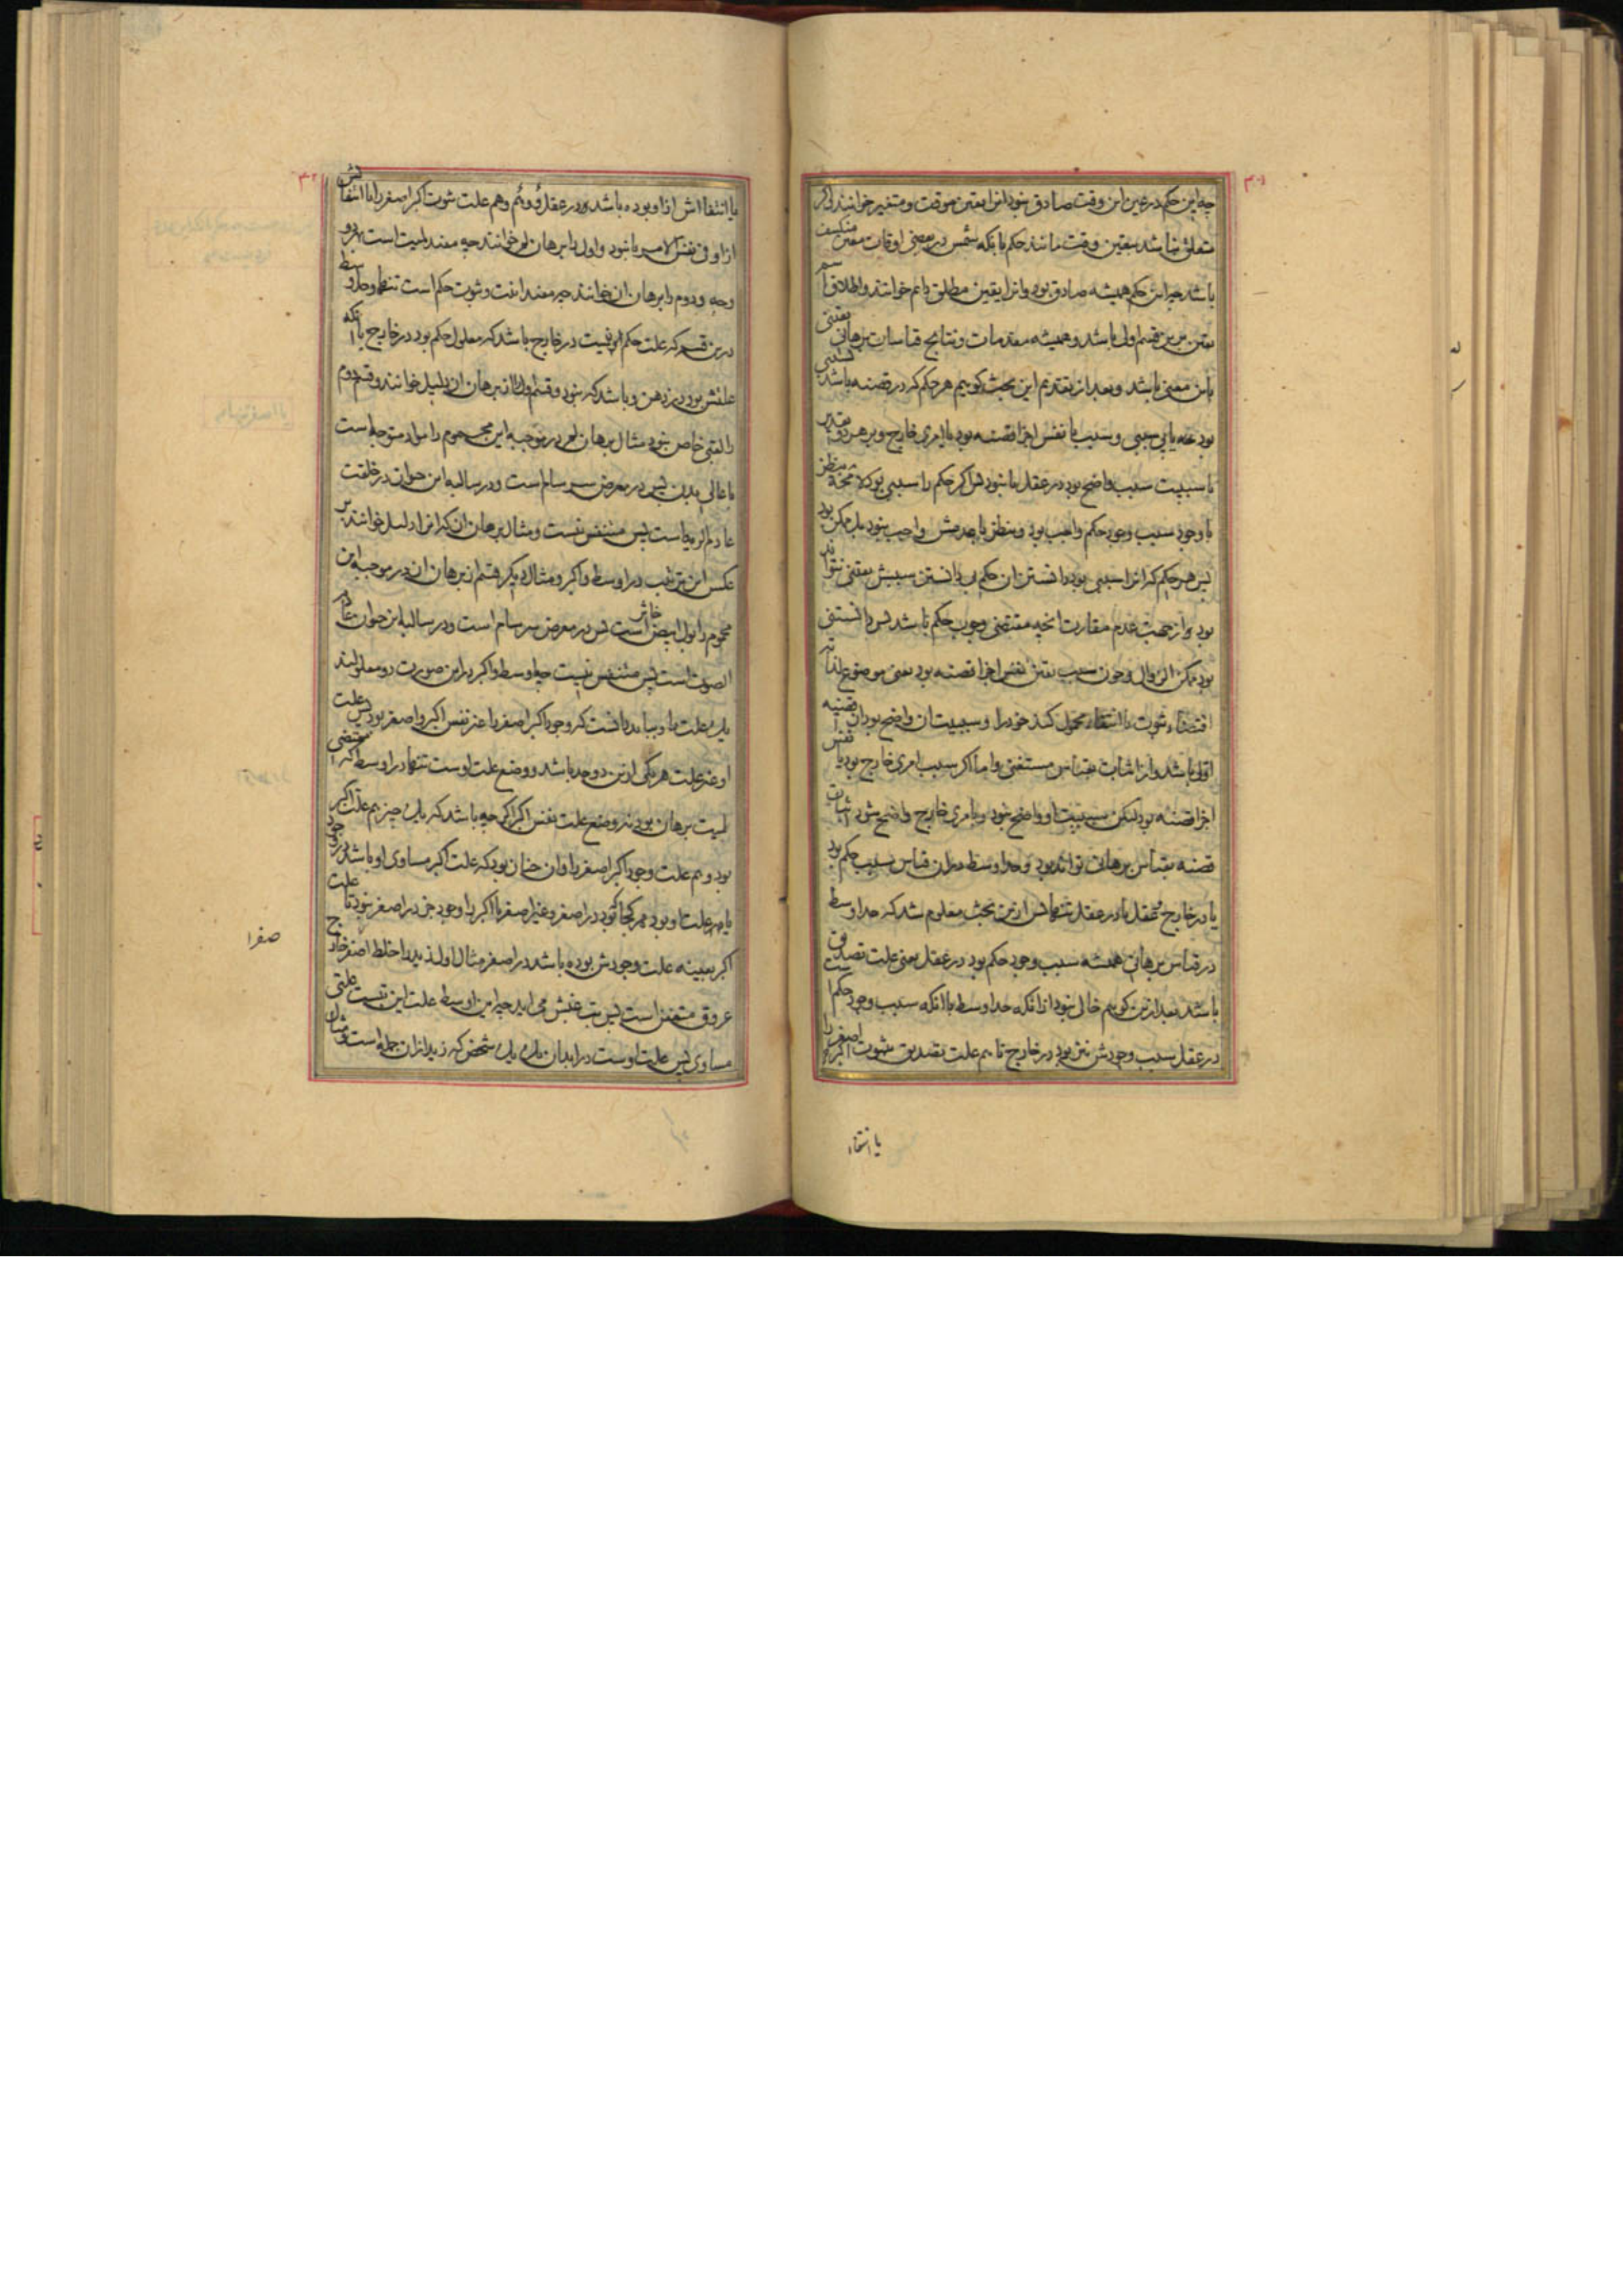 ۳۰۱
چه این حکم در غیر این وقت صادق نبود انرا یقین موقت و متغیر خوانند و اکر
متعلق نباشد بتعین وقت مانند حکم بانکه شمس در بعضی اوقات معین منکسف
باشد چه این حکم همیشه صادق بود و انرا یقین مطلق دایم خوانند و اطلاق اسم
یقین برین قسم اولی باشد و همیشه مقدمات و نتایج قیاسات برهانی یقینی
باین معنی باشد و بعد از تقدیم این بحث کوییم هر حکم که در قضیه باشد سببی
بود یا بی سببی و سبب یا نفس اجزا قضیه بود یا امری خارج و بر هر دو تقدیر
یا سببیت سبب واضح بود در عقل یا نبود پس اکر حکم را سببی بود لا محاله بنظر
با وجود سبب وجود حکم واجب بود و بنظر با عدمش واجب نبود بل ممکن بود
پس هر حکم که انرا سببی بود دانستن ان حکم بی دانستن سببش یقینی نتواند
بود و از جهت عدم مقارنت انچه مقتضی وجوب حکم باشد پس دانستنی
بود ممکن الزوال و چون سبب نفس اجزا قضیه بود یعنی موضوع لذاته
اقتضاء ثبوت یا انتفاء محمول کند خود را و سببیت ان واضح بود ان قضیه
اولی باشد و از اثبات بقیاس مستغنی و اما اکر سبب امری خارج بود یا نفس
اجزا قضیه بود لیکن سببیت او واضح نبود و بامری خارج واضح شود اثبات
قضیه بقیاس برهانی تواند بود و حد اوسط در ان قیاس سبب حکم بود
یا در خارج و عقل یا در عقل تنها پس ازین بحث معلوم شد که حد اوسط
در قیاس برهانی همیشه سبب وجود حکم بود در عقل یعنی علت تصدیق
باشد بعد ازین کوییم خالی نبود ازانکه حد اوسط با انکه سبب وجود حکم است
در عقل سبب وجودش نیز بود در خارج تا هم علت تصدیق بثبوت اکبر اصغر را
یا انتفاء
یا انتفااش ازاو بوده باشد در عقل و هم علت ثبوت اکبر اصغر را یا انتفااش
ازاو فی نفس الامر یا نبود و اول را برهان لم خوانند چه مفید لمیت است بهر دو
وجه و دوم را برهان ان خوانند چه مفید انیت و ثبوت حکم است تنها و حد اوسط
درین قسم که علت حکم نیست در خارج باشد که معلول حکم بود در خارج با انکه
علتش بود در ذهن و باشد که نبود و قسم اول را از برهان ان دلیل خوانند و قسم دوم
را لقبی خاص نبود مثال برهان لم در موجبه این محموم را مواد متوجه است
باعالی بدن پس در معرض سرسام است و در سالبه این حیوان در خلقت
عادم ریه است پس متنفس نیست و مثال برهان ان که انرا دلیل خوانند بر
عکس این ترتیب در اوسط و اکبر و مثال دیکر قسم از برهان ان در موجبه این
محموم را بول ابیض خاثر است پس در معرض سرسام است و در سالبه این حیوان عادم
الصوت است پس متنفس نیست چه اوسط و اکبر در این صورت دو معلولند
یک علت را و بباید دانست که وجود اکبر اصغر را غیر نفس اکبر و اصغر بود پس علت
او غیر علت هر یکی ازین دو حد باشد و وضع علت اوست تنها در اوسط که مقتضی
لمیت برهان بود نه وضع علت نفس اکبر اکر چه باشد که یک چیز هم علت اکبر
بود و هم علت وجود اکبر اصغر را و ان چنان بود که علت اکبر مساوی او باشد در وجود
یا هر علت او بود هر کجا که بود در اصغر و غیر اصغر یا اکبر را وجود جز در اصغر نبود تا علت
اکبر بعینه علت وجودش بوده باشد در اصغر مثال اول زید را خلط اصفر خارج
عروق متعفن است پس تب غبش می اید چه این اوسط علت این تبست علتی
مساوی پس علت اوست در ابدان یک یک شخص که زید ازان جمله است و مثال
صفرا